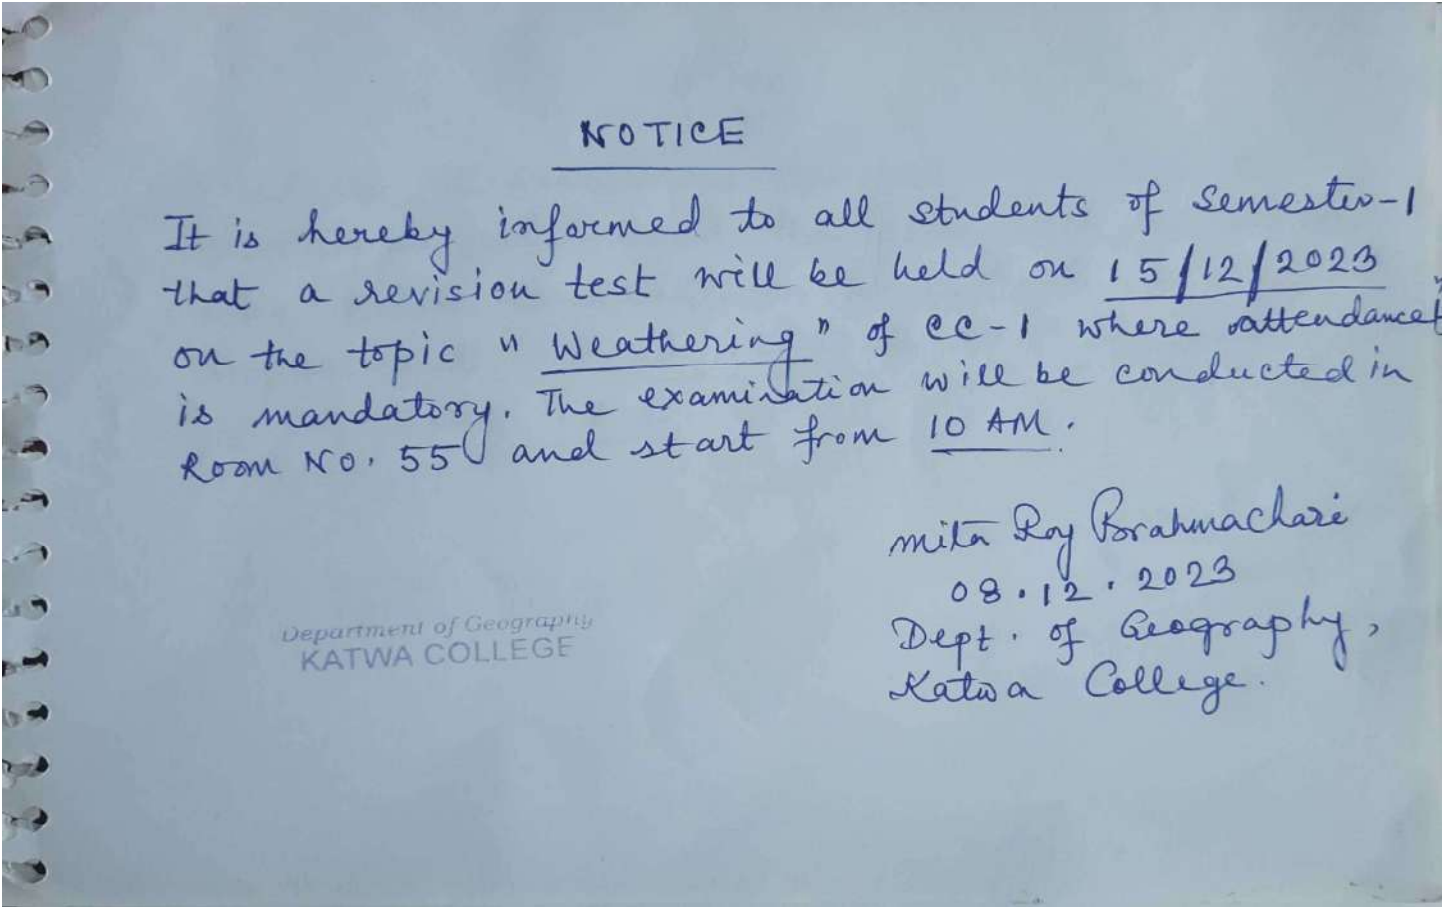 NOTICE
It is hereby informed to all students of Semester-1
that a revision test will be held on 15/12/2023
on the topic "Weathering" of CC-1 where attendance
is mandatory. The examination will be conducted in
Room No. 55 and start from 10 AM.
Mita Roy Brahmachari
08.12.2023
Dept. of Geography,
Katwa College.
Department of Geography
KATWA COLLEGE